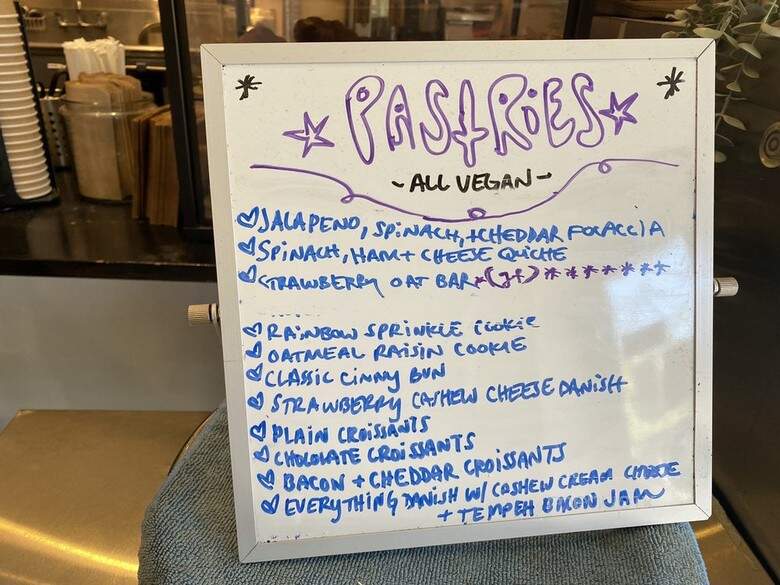 PASTRiES
~ALL VEGAN~
JALAPENO, SPiNACH, +CHEDDAR FOCACCIA
SPiNACH, HAM + CHEESE QUiCHE
STRAWBERRY OAT BAR *(gf) *******
RAiNBOW SPRiNKLE COOKiE
OATMEAL RAiSiN COOKiE
CLASSiC CiNNY BUN
STRAWBERRY CASHEW CHEESE DANiSH
PLAiN CROiSSANTS
CHOCOLATE CROiSSANTS
BACON + CHEDDAR CROiSSANTS
EVERYTHiNG DANiSH W/ CASHEW CREAM CHEESE
+ TEMPEH BACON JAM